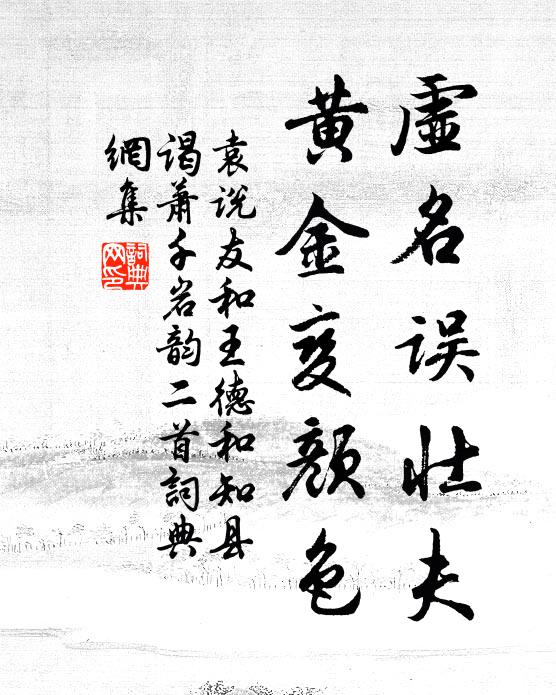 虛名误壮夫
黄金变颜色
袁说友和王德和知县
谒萧千岩韵二首詞典
網集
詞典
网印